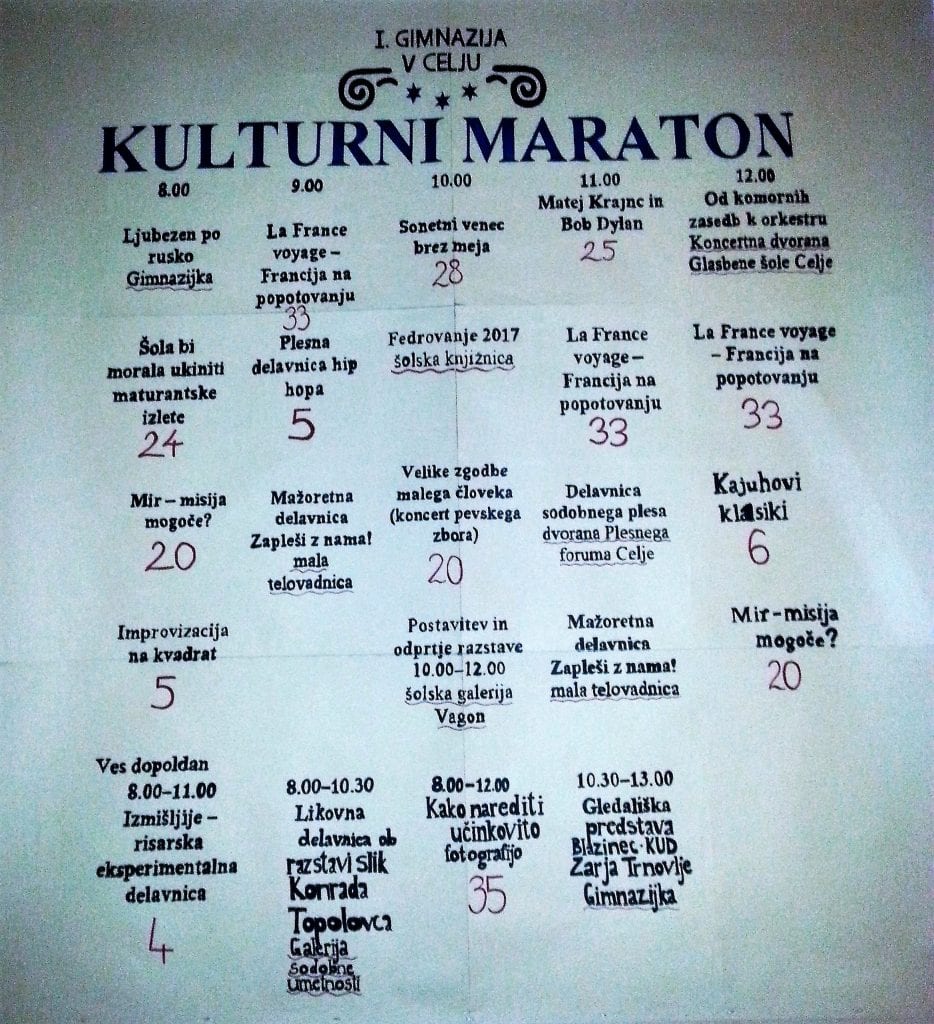 I. GIMNAZIJA
V CELJU
KULTURNI MARATON
8.00
Ljubezen po
rusko
Gimnazijka
Šola bi
morala ukiniti
maturantske
izlete
24
Mir – misija
mogoče?
20
Improvizacija
na kvadrat
5
9.00
La France
voyage –
Francija na
popotovanju
33
Plesna
delavnica hip
hopa
5
Mažoretna
delavnica
Zapleši z nama!
mala
telovadnica
10.00
Sonetni venec
brez meja
28
Fedrovanje 2017
šolska knjižnica
Velike zgodbe
malega človeka
(koncert pevskega
zbora)
20
Postavitev in
odprtje razstave
10.00–12.00
šolska galerija
Vagon
11.00
Matej Krajnc in
Bob Dylan
25
La France
voyage –
Francija na
popotovanju
33
Delavnica
sodobnega plesa
dvorana Plesnega
foruma Celje
Mažoretna
delavnica
Zapleši z nama!
mala telovadnica
12.00
Od komornih
zasedb k orkestru
Koncertna dvorana
Glasbene šole Celje
La France voyage
– Francija na
popotovanju
33
Kajuhovi
klasiki
6
Mir – misija
mogoče?
20
Ves dopoldan
8.00–11.00
Izmišljije –
risarska
eksperimentalna
delavnica
4
8.00–10.30
Likovna
delavnica ob
razstavi slik
Konrada
Topolovca
Galerija
sodobne
umetnosti
8.00–12.00
Kako narediti
učinkovito
fotografijo
35
10.30–13.00
Gledališka
predstava
Blizinec · KUD
Zarja Trnovlje
Gimnazijka